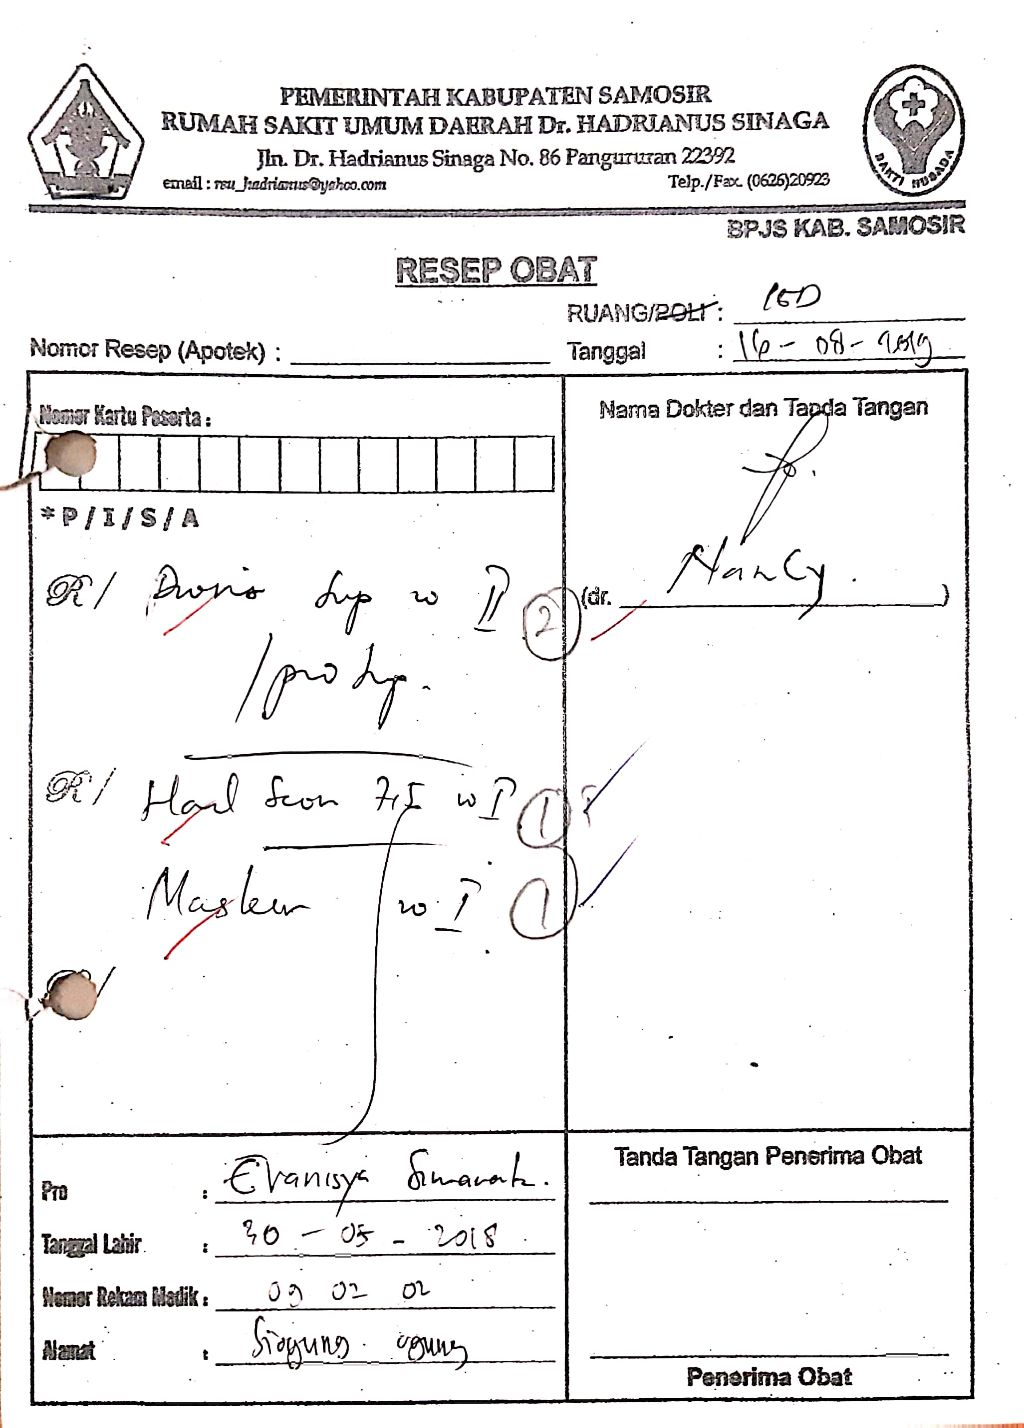 PEMERINTAH KABUPATEN SAMOSIR
RUMAH SAKIT UMUM DAERAH Dr. HADRIANUS SINAGA
Jln. Dr. Hadrianus Sinaga No. 86 Pangururan 22392
email : rsu_hadrianus@yahoo.com Telp./Fax. (0626)20923
BAKTI HUSADA
BPJS KAB. SAMOSIR
RESEP OBAT
RUANG/POLI : IGD
Nomor Resep (Apotek) :
Tanggal : 16-08-2019
Nomor Kartu Peserta :
Nama Dokter dan Tanda Tangan
* P / I / S / A
R/ II 2
(dr. Nancy. )
/pro
R/ I 1
Masker I 1
R/
Pro : Evanisya
Tanggal Lahir : 30-05-2018
Nomor Rekam Medik : 09 02 02
Alamat :
Tanda Tangan Penerima Obat
Penerima Obat